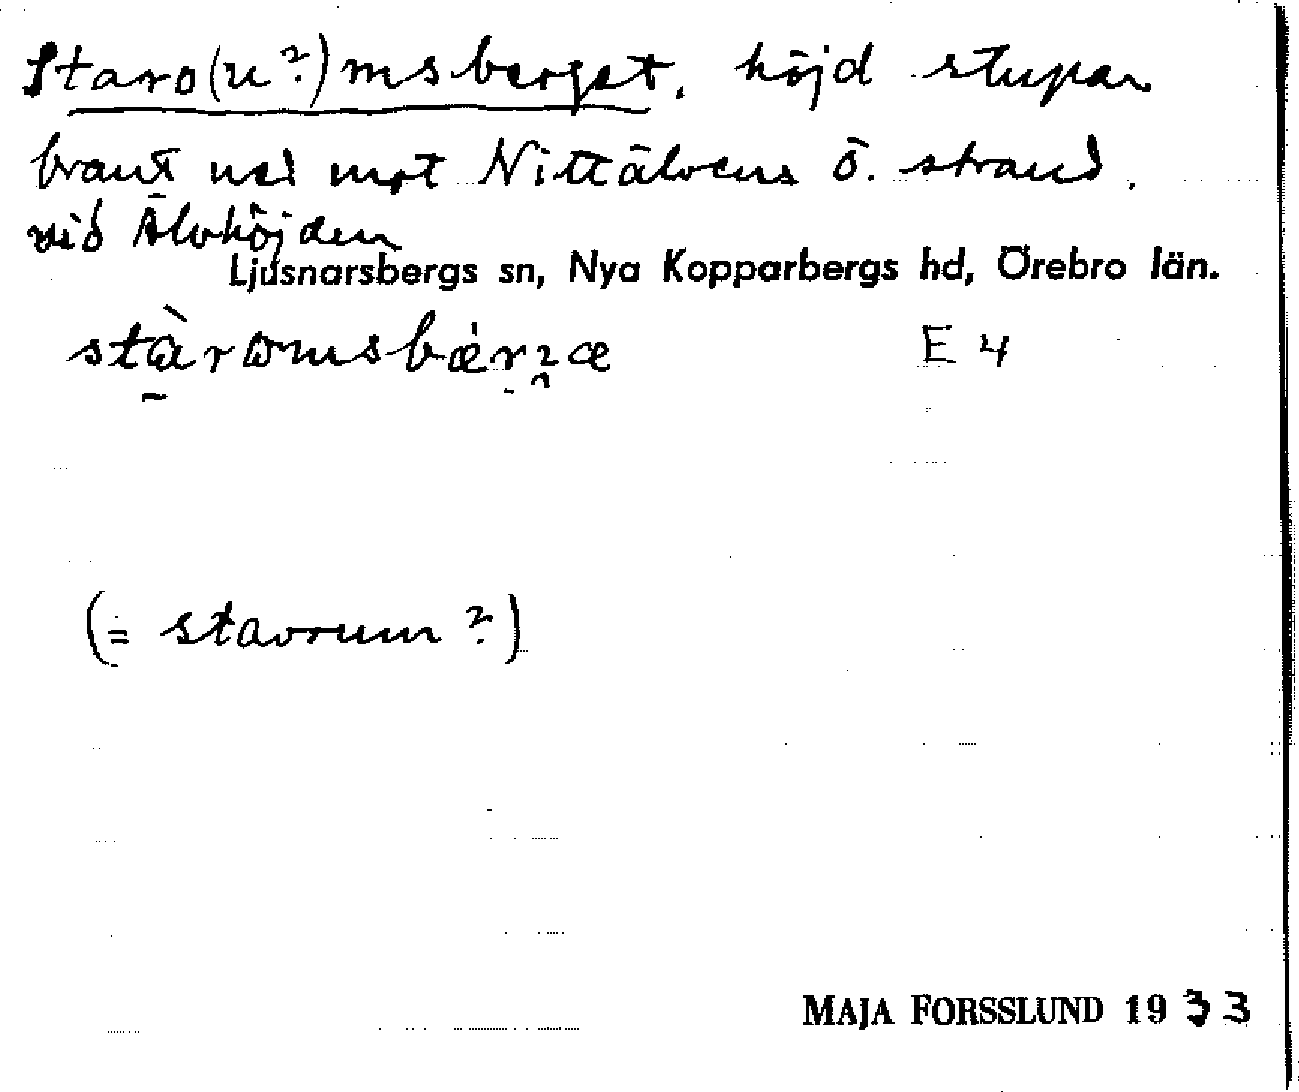 Staro(u?)msberget, höjd stupar
brant ned mot Nittälvens ö. strand,
vid Älvhöjden
Ljusnarsbergs sn, Nya Kopparbergs hd, Örebro län.
E 4
(= stavrum?)
MAJA FORSSLUND 1933